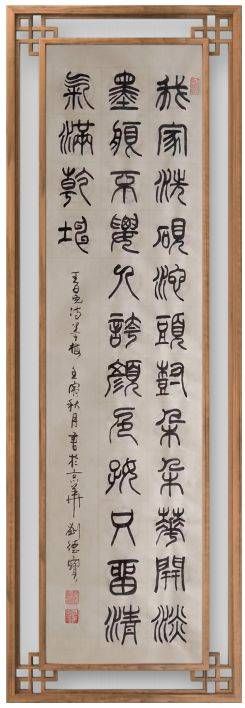 我家洗硯池頭樹朵朵華開淡
墨痕不要人誇顏色好只留清
氣滿乾坤
王冕诗墨梅 壬寅秋月書於京華 劉德寶